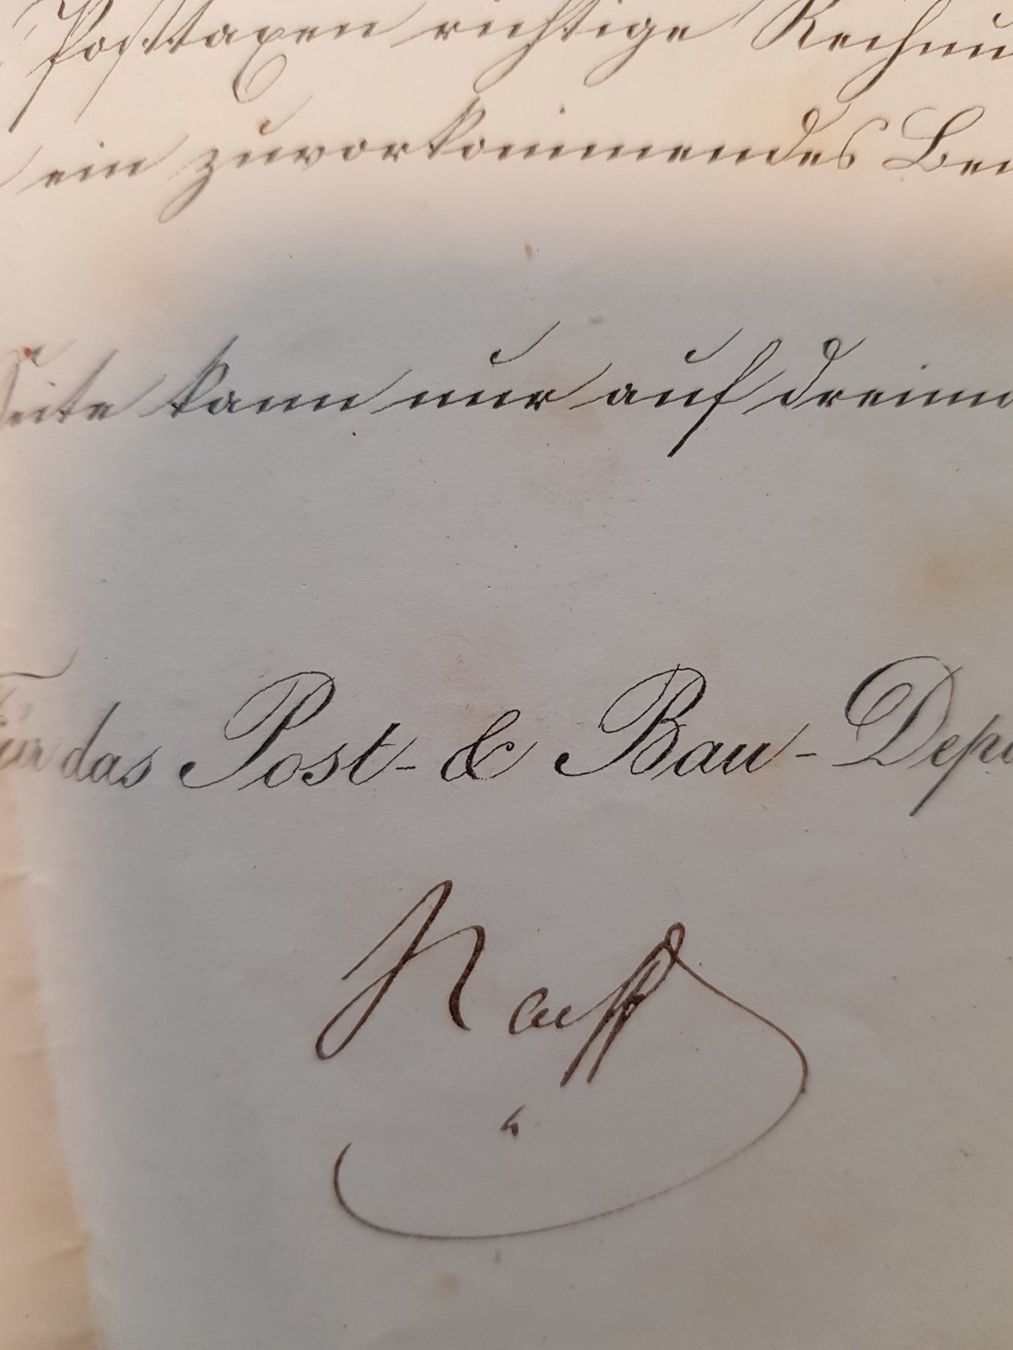 Posttaxen richtige Rechnu
ein zuvorkommendes Be
Seite kann nur auf dreimo
Für das Post- & Bau-Depa
Naeff